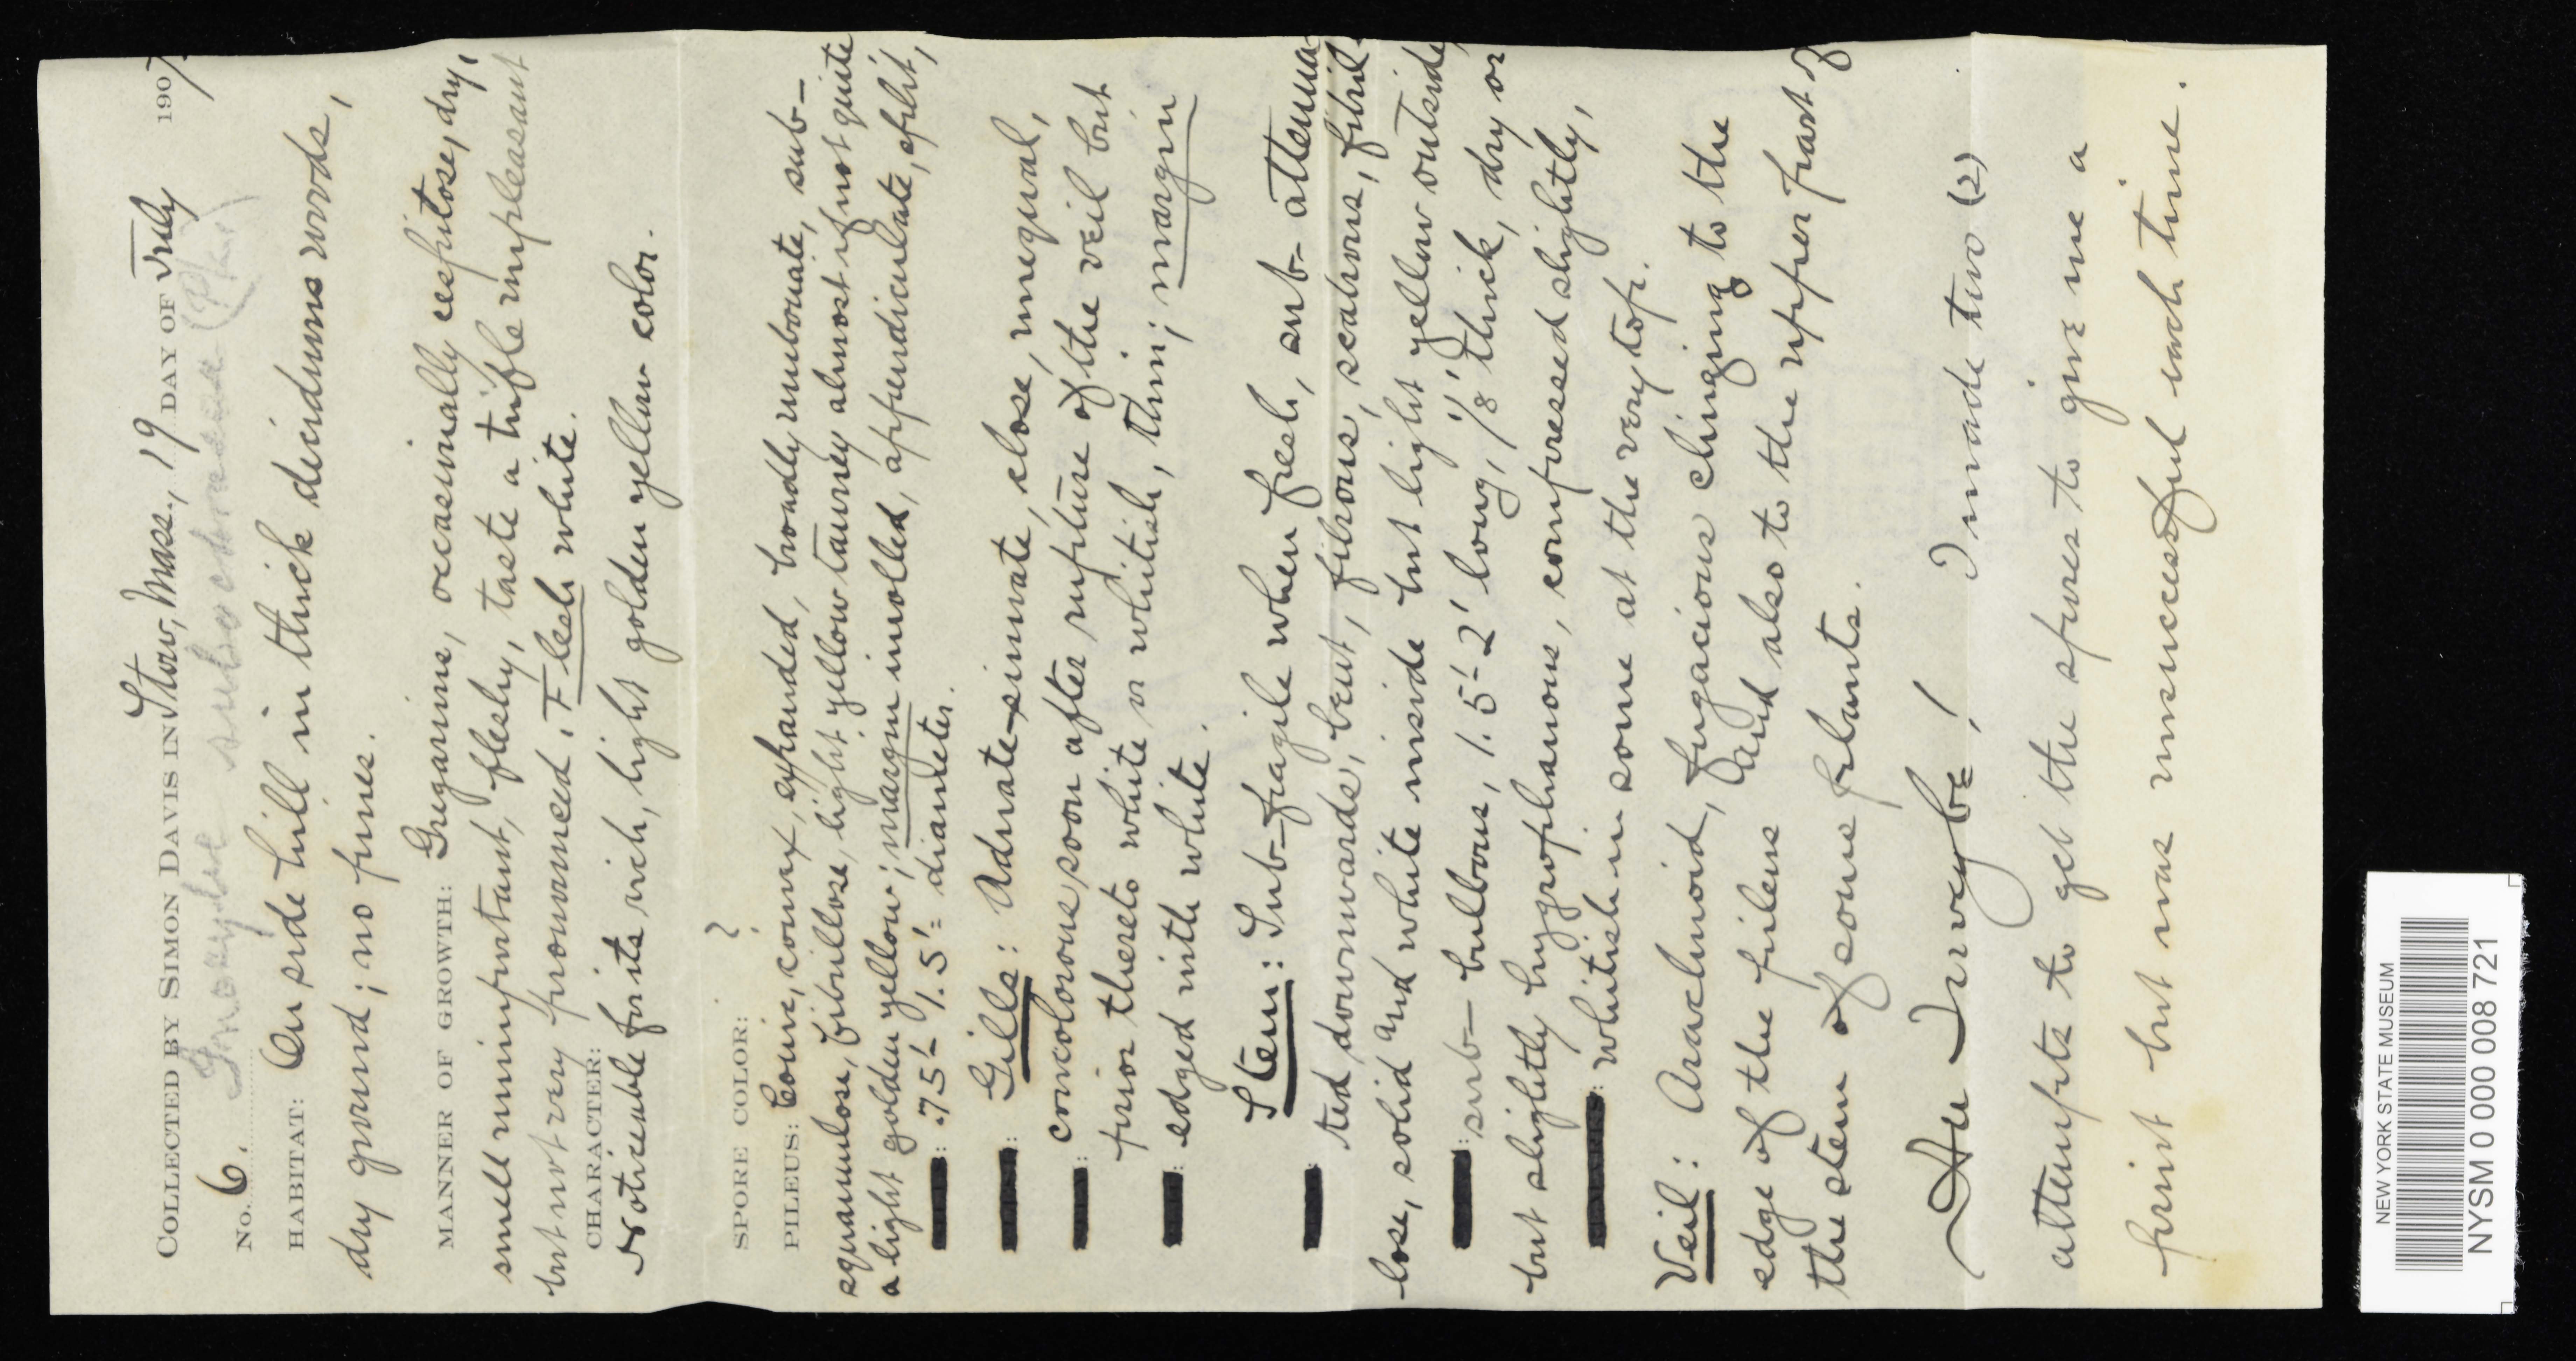 COLLECTED BY SIMON DAVIS IN Stow, Mass., 19 DAY OF July 1907
No. 6. Inocybe subochracea (Pk.)
HABITAT: On side hill in thick deciduns woods,
dry ground; no pines.
MANNER OF GROWTH: Gregarine, occasinally cespitose, dry,
smell unimportant, fleshy, taste a trifle unpleasant
but not very pronounced. Flesh white.
CHARACTER:
Noticeable for its rich, light golden yellow color.
SPORE COLOR: ?
PILEUS: Conic, convex, expanded, broadly umbonate, sub-
squamulose, fibrillose, light yellow tawney almost if not quite
a light golden yellow; margin inrolled, appendiculate, split,
: .75'- 1.5'= diameter.
: Gills: Adnate-sinuate, close, unequal,
: concolorous soon after rupture of the veil but
prior thereto white or whitish, thin; margin
: edged with white.
Stem: Sub-fragile when fresh, sub-attenua-
: ted downwards, bent, fibrous, scabrous, fibril-
lose, solid and white inside but light yellow outside,
: sub-bulbous, 1.5'-2' long, 1/8" thick, dry or
but slightly hygrophanous, compressed slightly,
: whitish in some at the very top.
Veil: Arachnoid, fugacious clinging to the
edge of the pileus and also to the upper part of
the stem of some plants.
An Inocybe! I made two (2)
attempts to get the spores to give me a
print but was unsuccessful each time.
NEW YORK STATE MUSEUM
NYSM 0 000 008 721